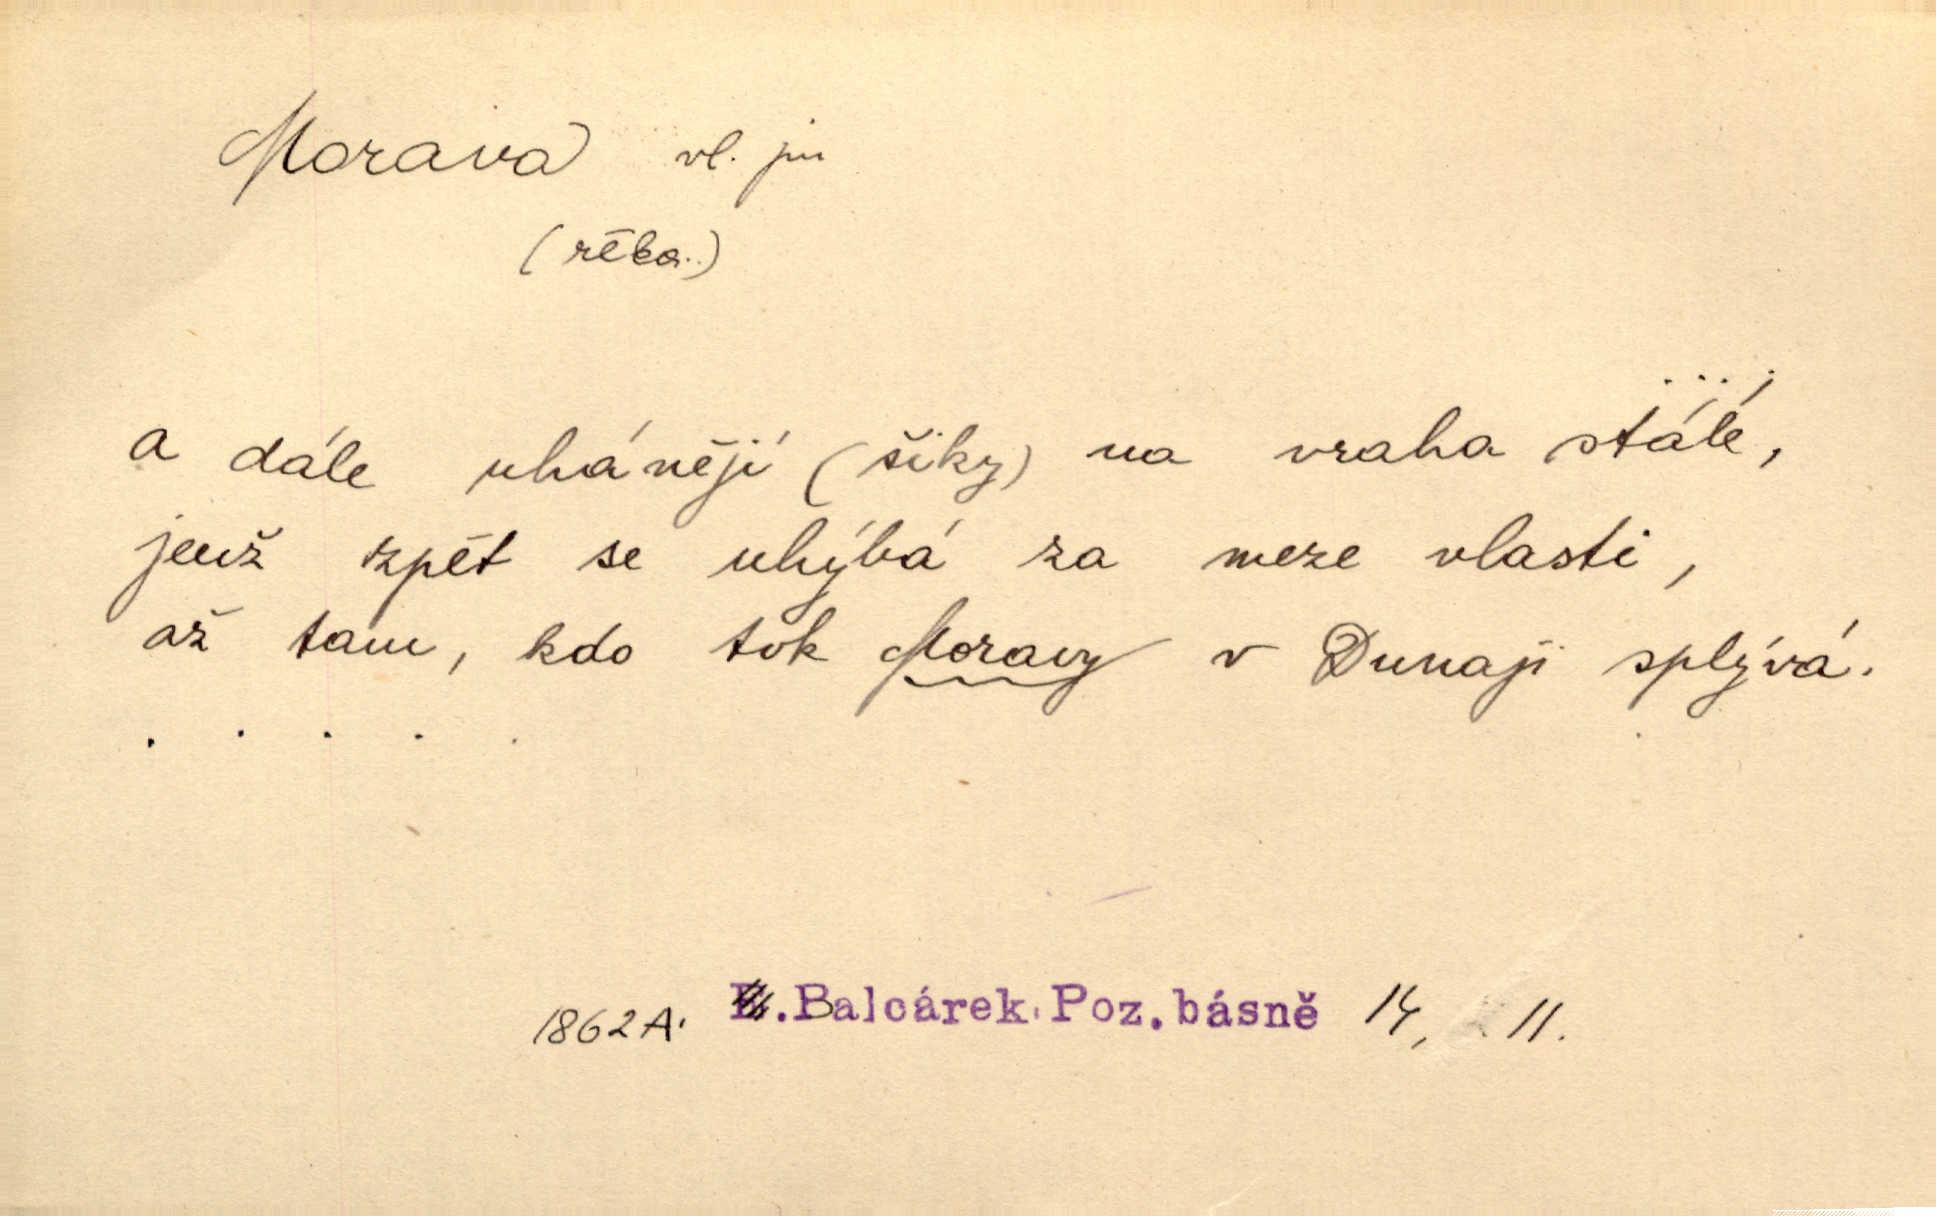 Morava vl. jm
(řeka..)
...;
a dále uhánějí (šiky) na vraha stálé,
jenž zpět se uhýbá za meze vlasti,
až tam, kdo tok Moravy v Dunaji splývá.
. . . . .
1862A. .Balcárek.Poz.básně 14, 11.